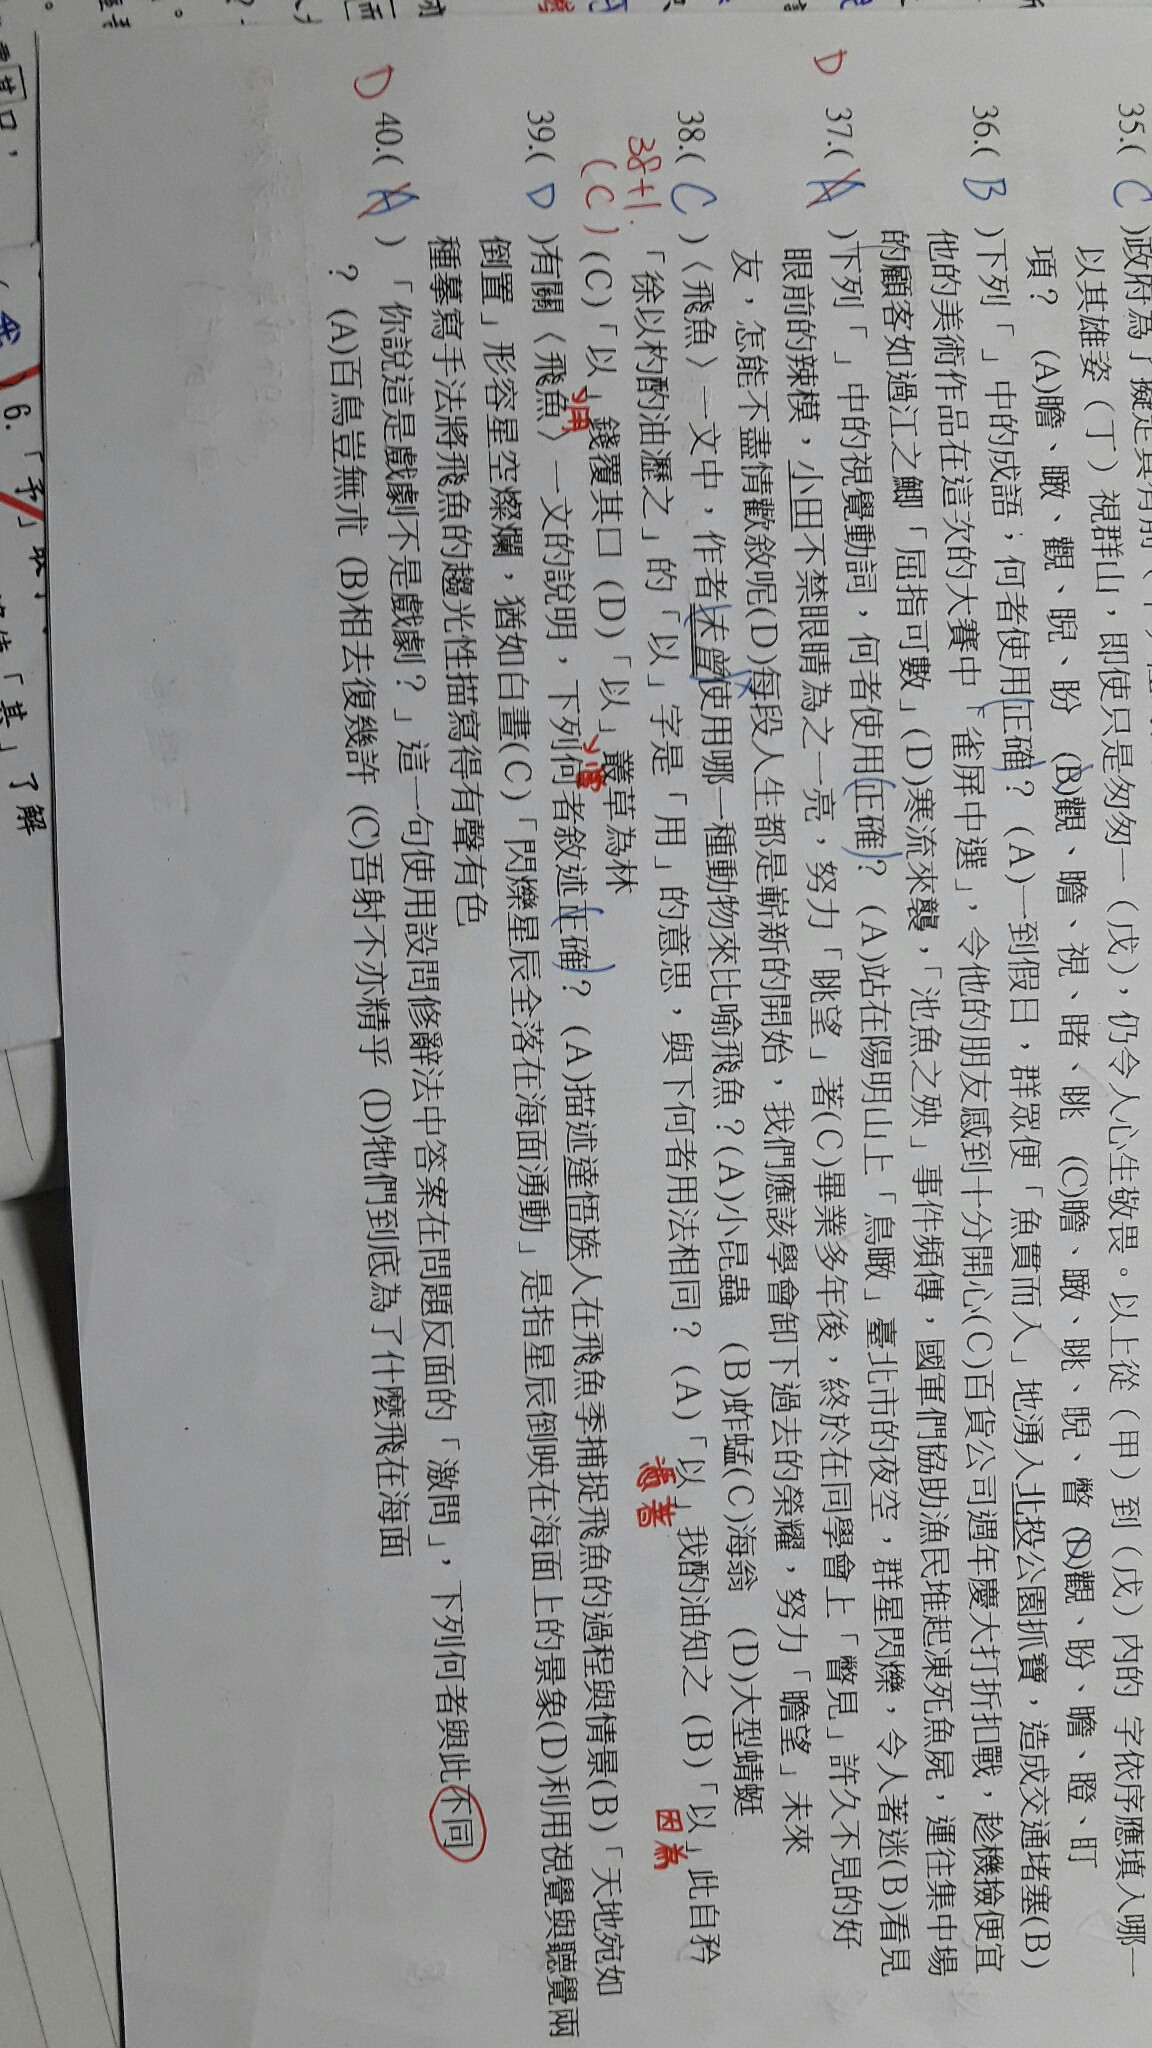 35.( C )政府為了擬定具有前
以其雄姿（丁）視群山，即使只是匆匆一（戊），仍令人心生敬畏。以上從（甲）到（戊）內的 字依序應填入哪一
項？ (A)瞻、瞰、觀、睨、盼 (B)觀、瞻、視、睹、眺 (C)瞻、瞰、眺、睨、瞥 (D)觀、盼、瞻、瞪、盯
36.( B )下列「 」中的成語，何者使用正確？ (A)一到假日，群眾便「魚貫而入」地湧入北投公園抓寶，造成交通堵塞(B)
他的美術作品在這次的大賽中「雀屏中選」，令他的朋友感到十分開心(C)百貨公司週年慶大打折扣戰，趁機撿便宜
的顧客如過江之鯽「屈指可數」(D)寒流來襲，「池魚之殃」事件頻傳，國軍們協助漁民堆起凍死魚屍，運往集中場
D 37.( A )下列「 」中的視覺動詞，何者使用正確？ (A)站在陽明山上「鳥瞰」臺北市的夜空，群星閃爍，令人著迷(B)看見
眼前的辣模，小田不禁眼睛為之一亮，努力「眺望」著(C)畢業多年後，終於在同學會上「瞥見」許久不見的好
友，怎能不盡情歡敘呢(D)每段人生都是嶄新的開始，我們應該學會卸下過去的榮耀，努力「瞻望」未來
38.( C )〈飛魚〉一文中，作者未曾使用哪一種動物來比喻飛魚？(A)小昆蟲 (B)蚱蜢(C)海翁 (D)大型蜻蜓
38+1. ( C )「徐以杓酌油瀝之」的「以」字是「用」的意思，與下何者用法相同？ (A)「以」我酌油知之 (B)「以」此自矜
憑著 因為
(C)「以」錢覆其口 (D)「以」叢草為林
用
39.( D )有關〈飛魚〉一文的說明，下列何者敘述正確？ (A)描述達悟族人在飛魚季捕捉飛魚的過程與情景(B)「天地宛如
倒置」形容星空燦爛，猶如白晝(C)「閃爍星辰全落在海面湧動」是指星辰倒映在海面上的景象(D)利用視覺與聽覺兩
種摹寫手法將飛魚的趨光性描寫得有聲有色
D 40.( A )「你說這是戲劇不是戲劇？」這一句使用設問修辭法中答案在問題反面的「激問」，下列何者與此不同
？ (A)百鳥豈無朮 (B)相去復幾許 (C)吾射不亦精乎 (D)牠們到底為了什麼飛在海面
其口，
6.「
」
「其」了解